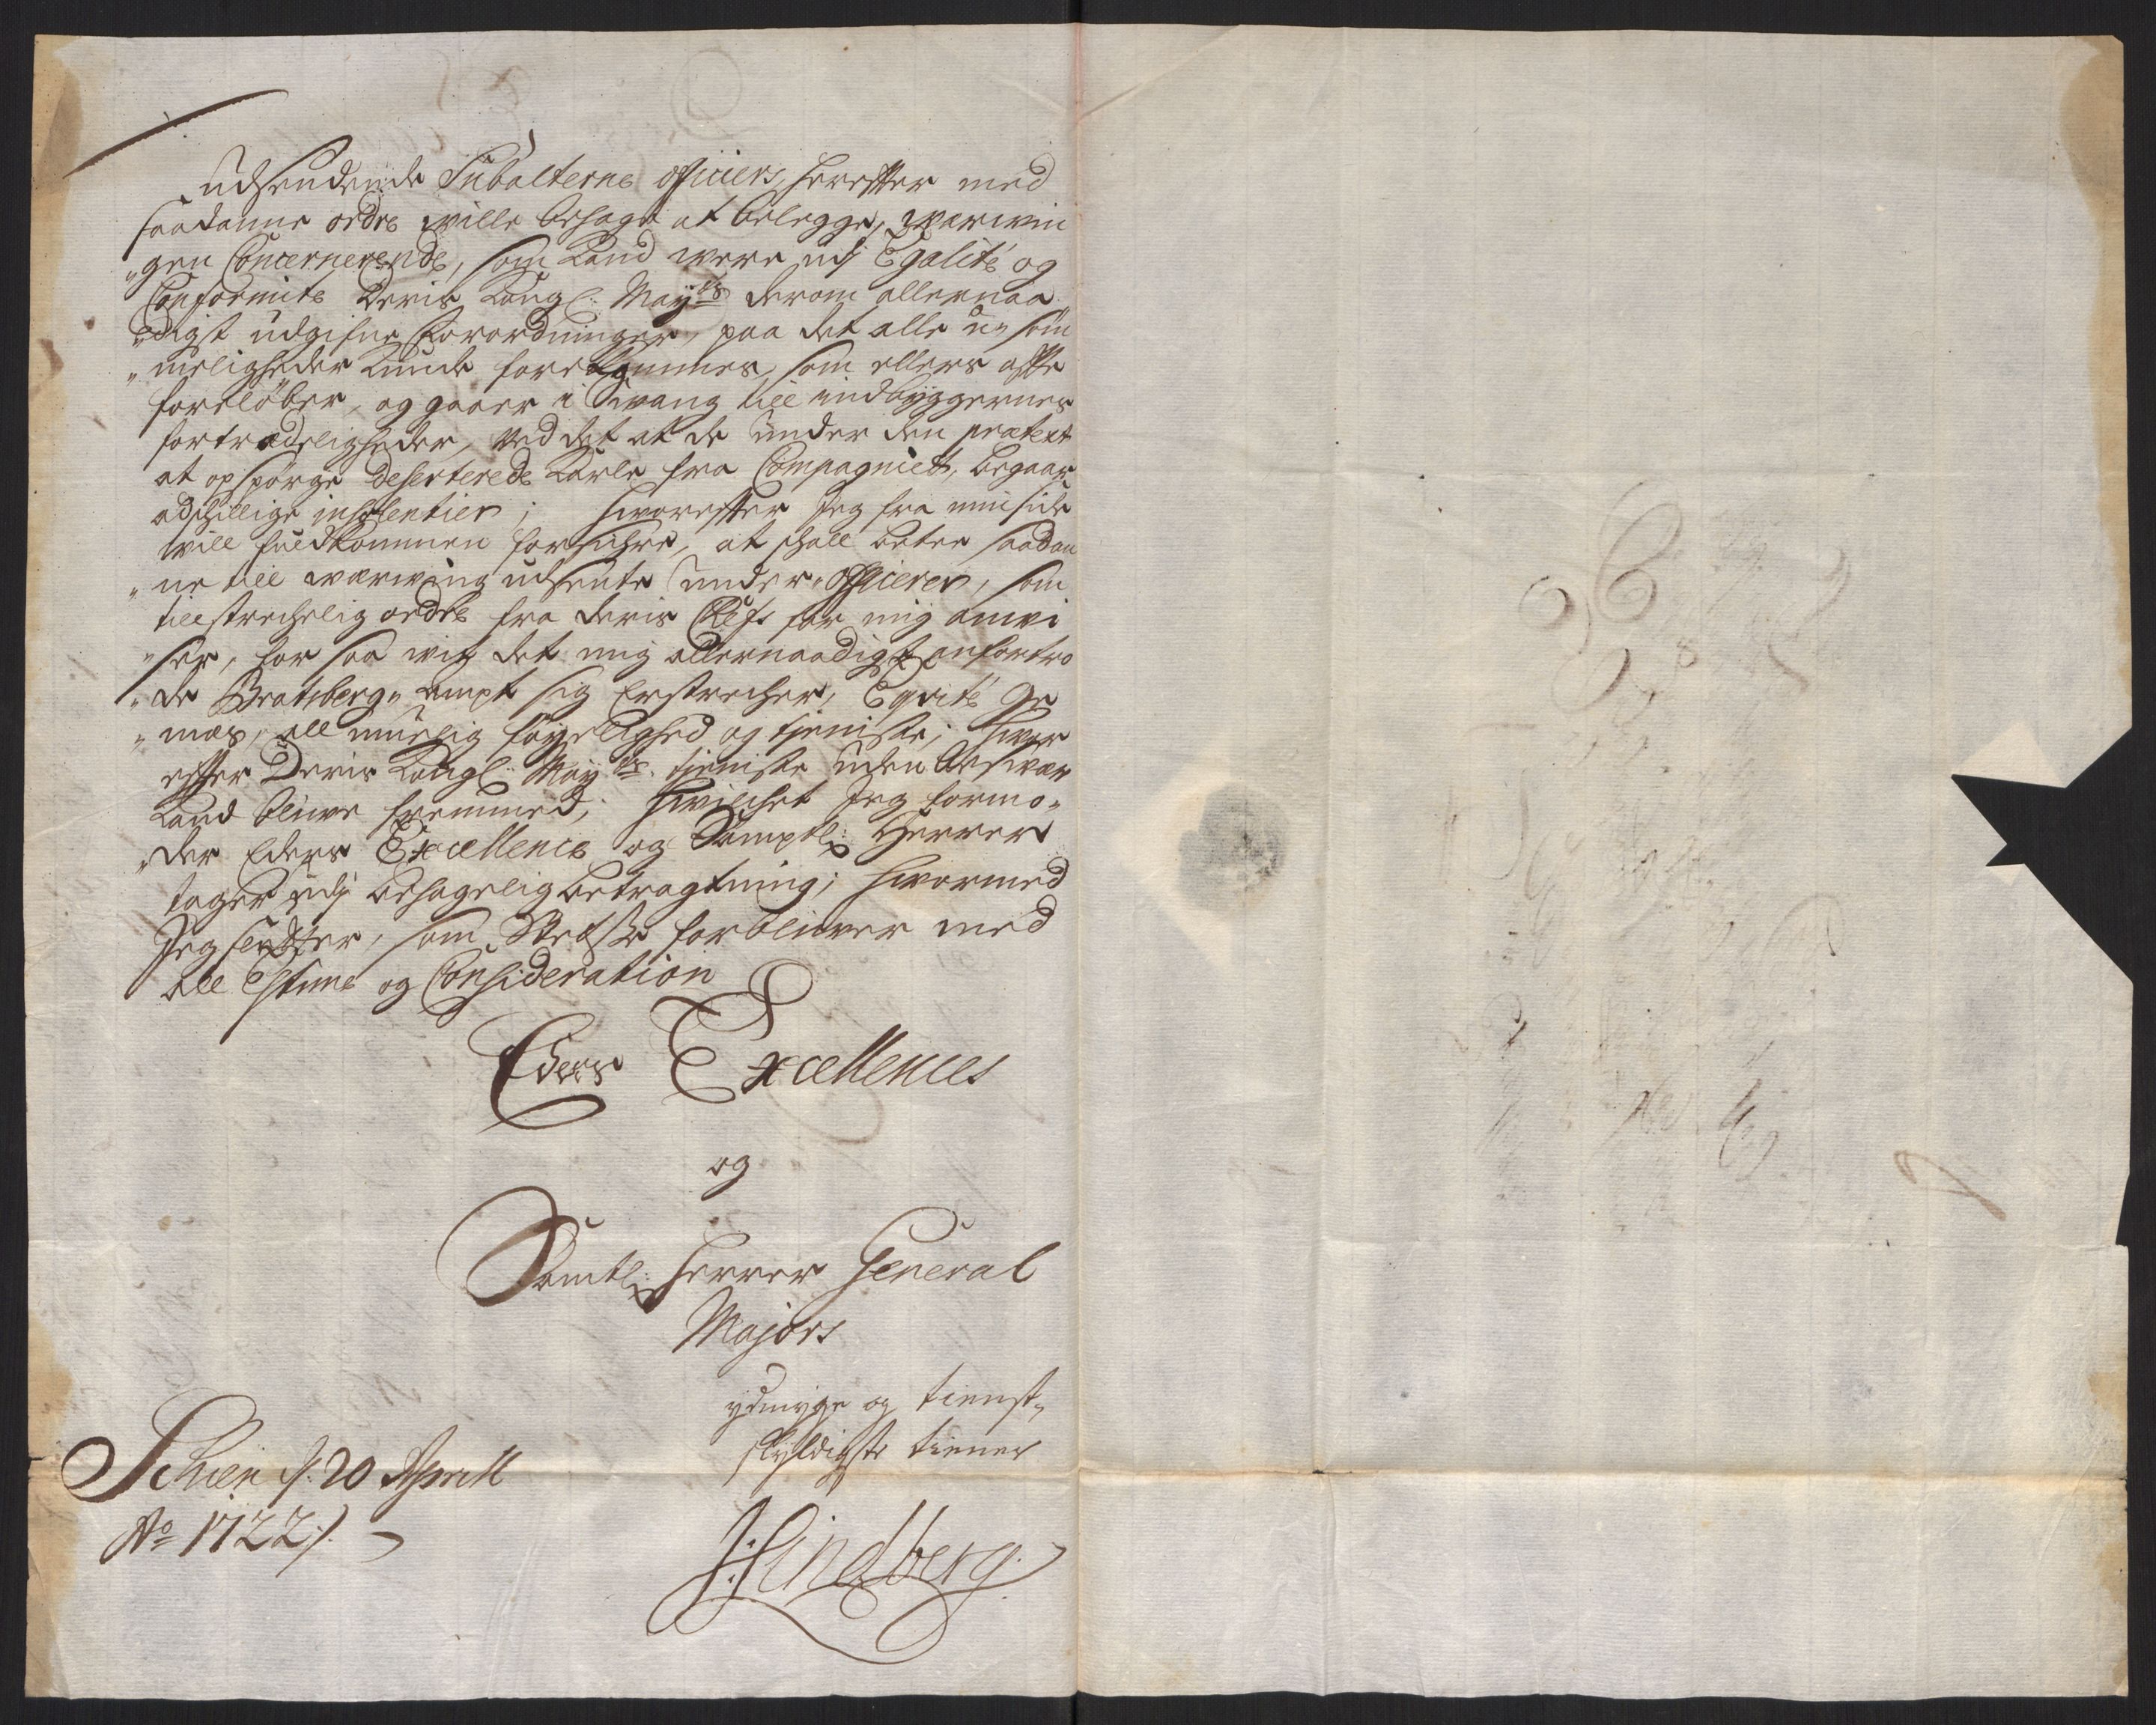 udsendende Subalterne officiers, herefter med
saadanne ordre wille behage at belegge, werwin
„gen Concernerende, som kand were udj Egalité og
Conformite Deris Kongl: Mayts derom allernaa
„digst udgifne forordninger, paa det alle u„söm
„meligheder kunde forekommes, som ellers ofte
foreløber, og gaaer i Swang till indbyggernes
fortrædeligheder, ved det at de under den prætext
at opspørge deserterede Karle fra Compagniet, begaar
adschillige insolentier; hworefter Jeg fra min side
will fuldkommen forsichre, at schall betee saadan
„ne till werwing udsente under„officerer, som
tillstrechelig ordre fra deris Chefs for mig anvi
„ser, for saa wit det mig allernaadigst anfortro
„de Bratsberg„ampt sig Erstrecher, Eqvité ge
„mæs, all muelig føyelighed og tieniste; hwor
effter Deris Kongl: Mayts tieniste uden beswær
kand bliwe fremmed; hwilchet Jeg formo„
„der Eders Excellence og Samptl: Herrer
tager udj behagelig betragtning; hwormed
Jeg slutter, som stedse forbliwer med
all Estime og Consideration
Eders Excellences
og
Samtl: Herrer General
Majors
ydmyge og tienst„
skyldigste tiener
Schien d. 20 Aprill
Ao 1722 /.
H: Lindberg